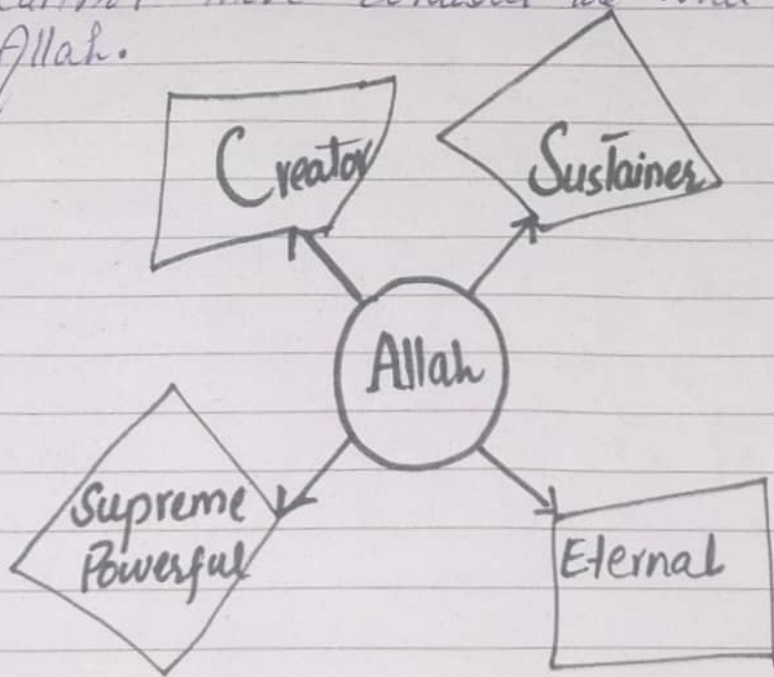 Allah.
Creator
Sustainer
Allah
Supreme
Powerful
Eternal